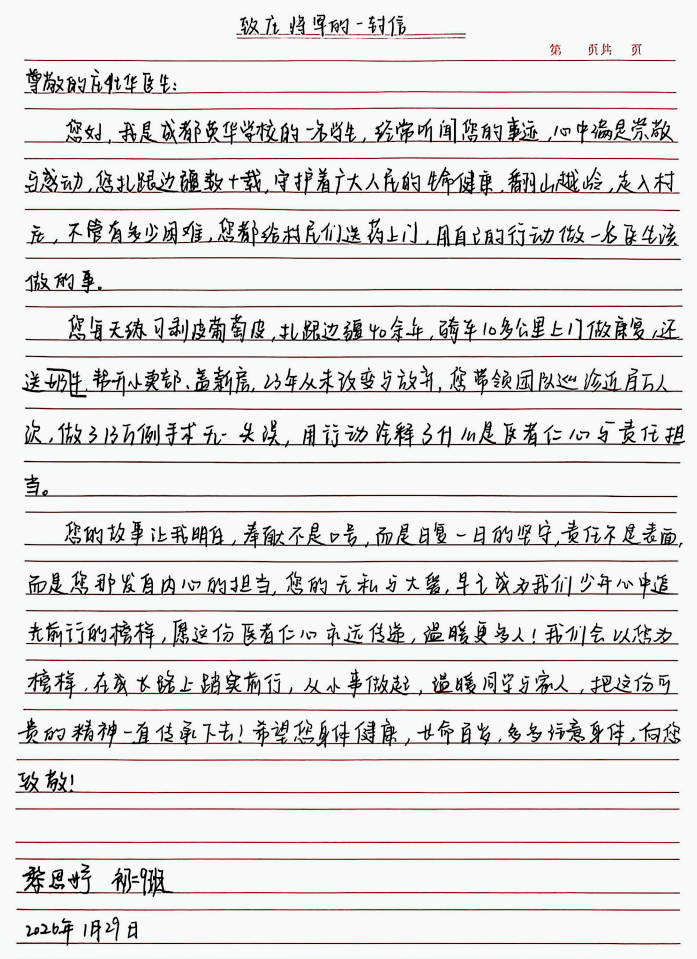 致庄将军的一封信
第 页共 页
尊敬的庄仕华医生：
您好，我是成都英华学校的一名学生，经常听闻您的事迹，心中满是崇敬
与感动，您扎跟边疆数十载，守护着广大人民的生命健康，翻山越岭，走入村
庄，不管有多少困难，您都给村民们送药上门，用自己的行动做一名医生该
做的事。
您每天练习剥皮葡萄皮，扎跟边疆40余年，骑车10多公里上门做康复，还
送奶牛，帮开小卖部、盖新房，23年从未改变与放弃，您带领团队巡诊近百万人
次，做了13万例手术无一失误，用行动诠释了什么是医者仁心与责任担
当。
您的故事让我明白，奉献不是口号，而是日复一日的坚守，责任不是表面，
而是您那发自内心的担当，您的无私与大爱，早已成为我们少年心中追
光前行的榜样，愿这份医者仁心永远传递，温暖更多人！我们会以您为
榜样，在成长路上踏实前行，从小事做起，温暖同学与家人，把这份可
贵的精神一直传承下去！希望您身体健康，长命百岁，多多注意身体，向您
致敬！
黎思妤 初二9班
2026年1月29日